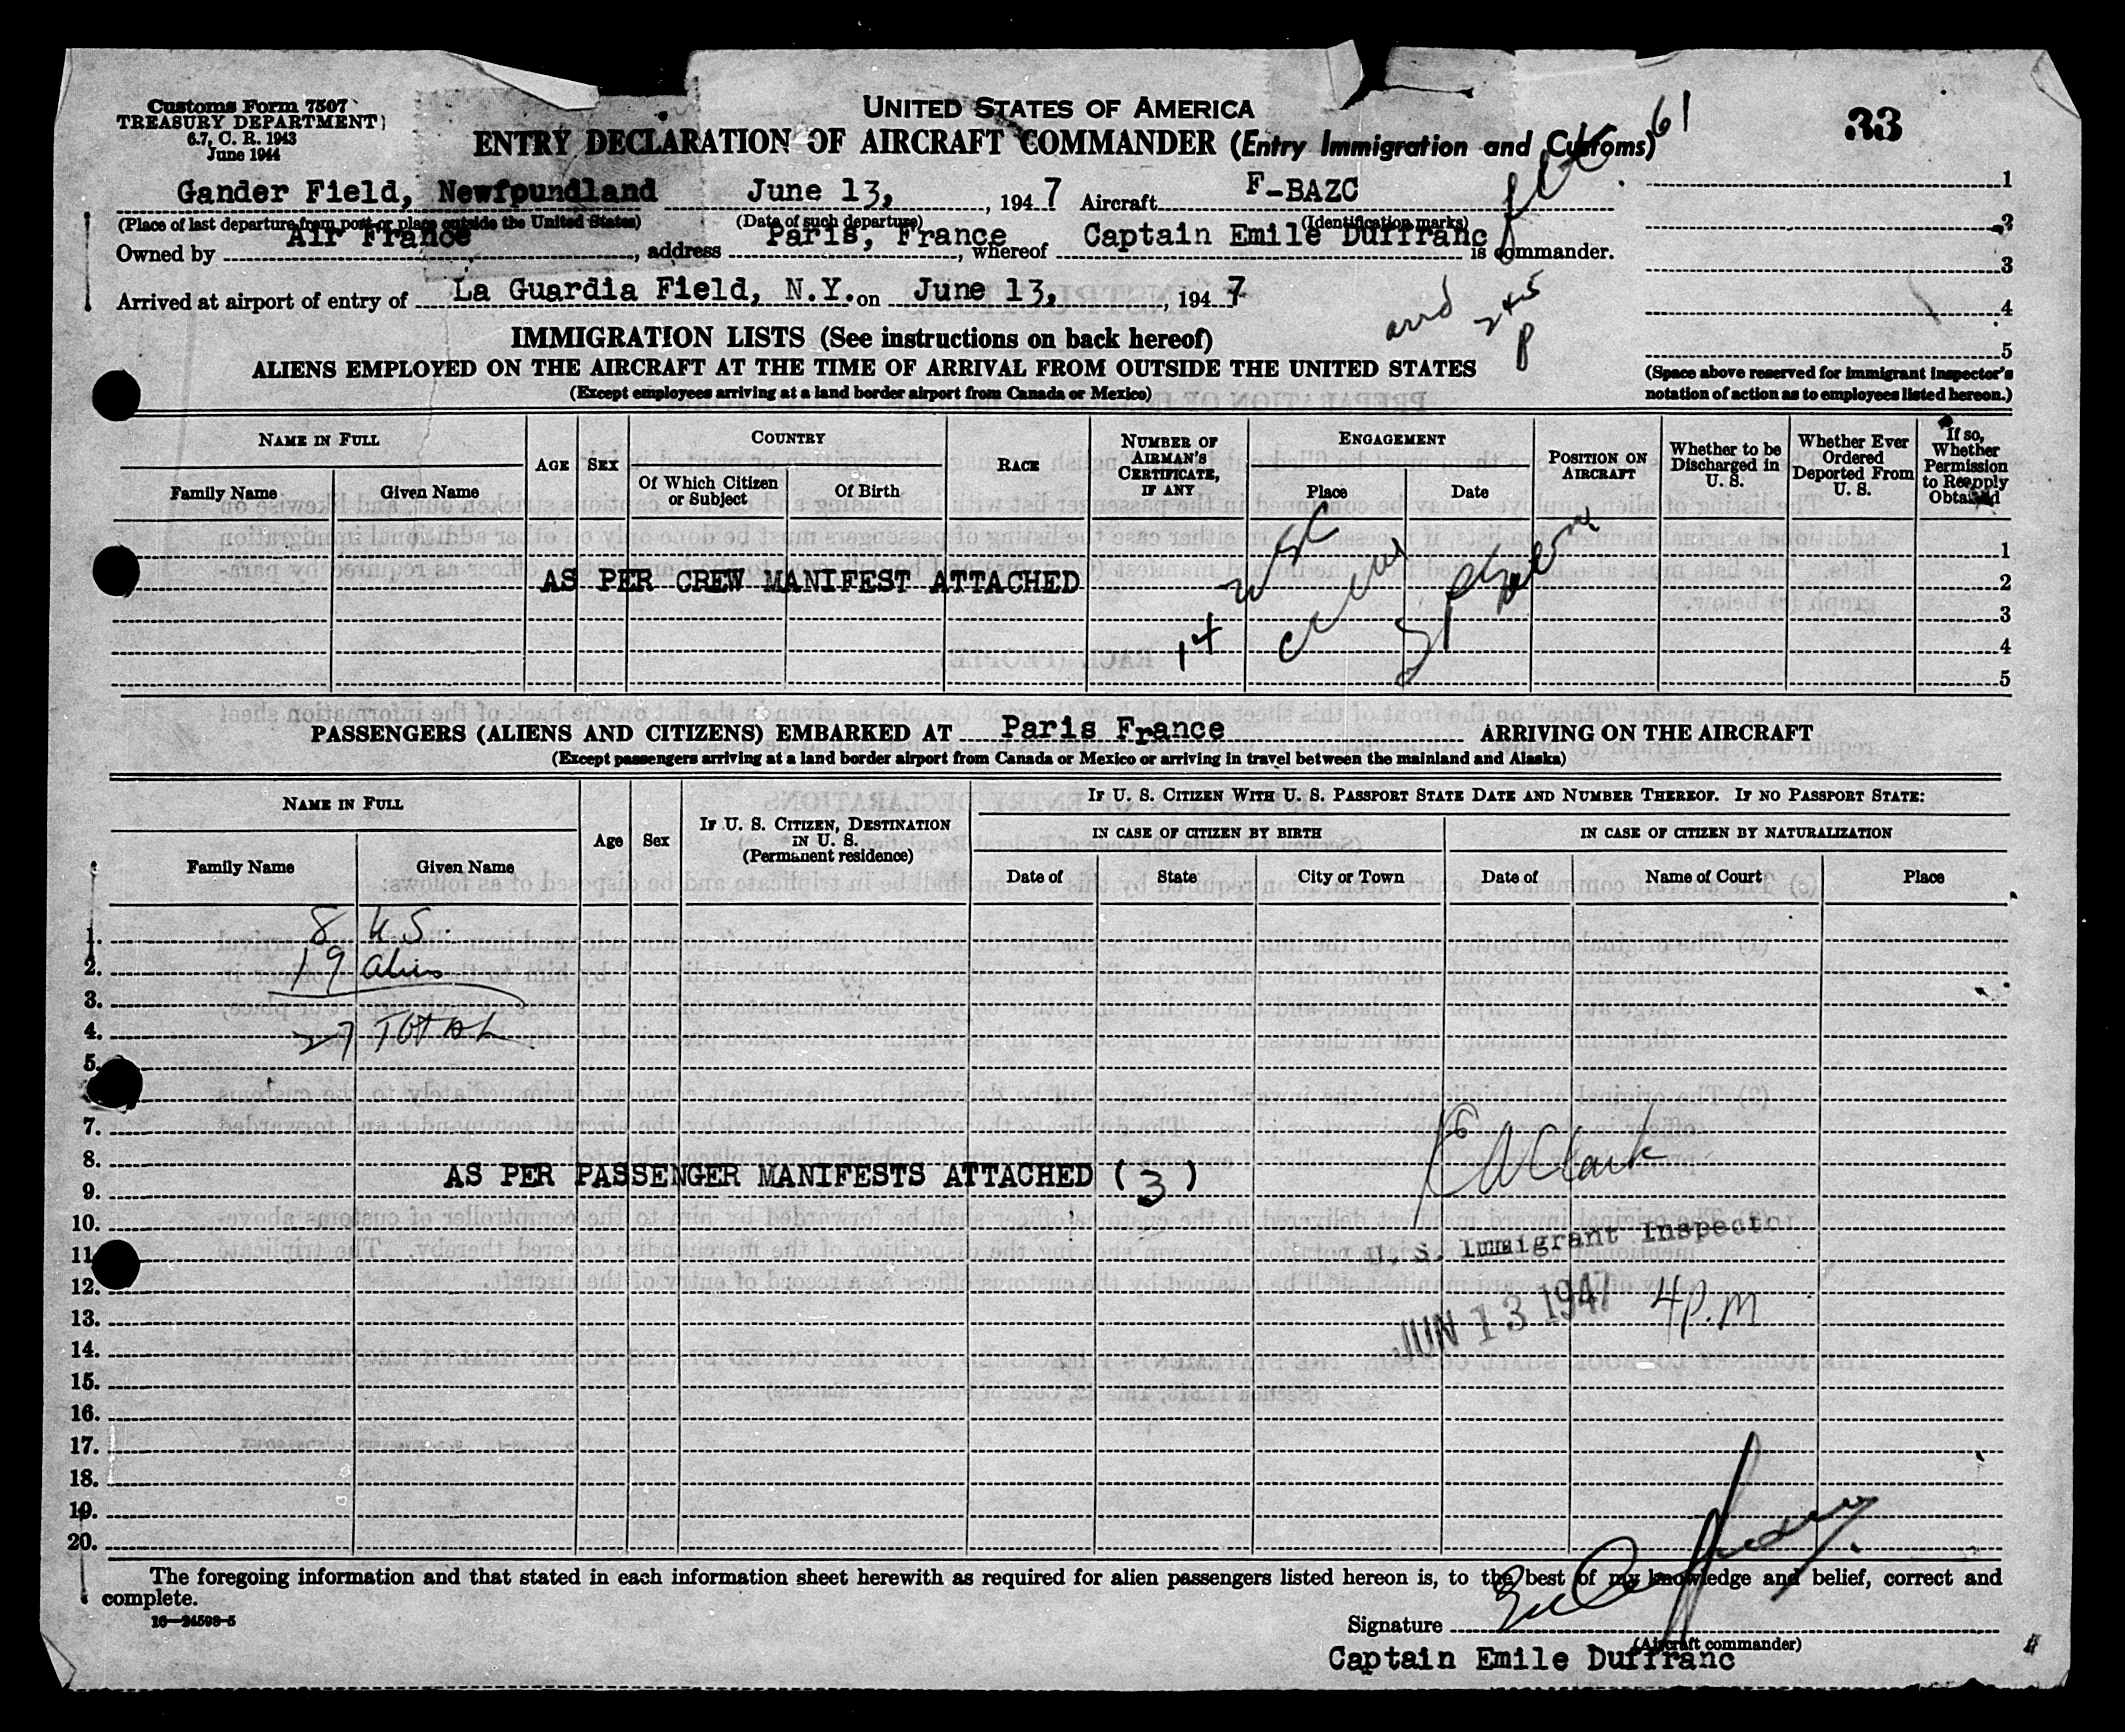 Customs Form 7507
TREASURY DEPARTMENT
6.7, C. R. 1943
June 1944
UNITED STATES OF AMERICA
ENTRY DECLARATION OF AIRCRAFT COMMANDER (Entry Immigration and Customs)
61
33
Gander Field, Newfoundland June 13, , 1947 Aircraft F-BAZC
(Place of last departure from port or place outside the United States) (Date of such departure) (Identification marks)
Owned by Air France, address Paris, France, whereof Captain Emile Duffranc is commander.
Arrived at airport of entry of La Guardia Field, N.Y. on June 13, , 1947
arrd 245 P
1
2
3
4
5
(Space above reserved for immigrant inspector's notation of action as to employees listed hereon.)
IMMIGRATION LISTS (See instructions on back hereof)
ALIENS EMPLOYED ON THE AIRCRAFT AT THE TIME OF ARRIVAL FROM OUTSIDE THE UNITED STATES
(Except employees arriving at a land border airport from Canada or Mexico)
NAME IN FULL
Family Name Given Name
AGE SEX
COUNTRY
Of Which Citizen or Subject Of Birth
RACE
NUMBER OF AIRMAN'S CERTIFICATE, IF ANY
ENGAGEMENT
Place Date
POSITION ON AIRCRAFT
Whether to be Discharged in U. S.
Whether Ever Ordered Deported From U. S.
If so, Whether Permission to Reapply Obtained
1
AS PER CREW MANIFEST ATTACHED 2
3
14 4
5
PASSENGERS (ALIENS AND CITIZENS) EMBARKED AT Paris France ARRIVING ON THE AIRCRAFT
(Except passengers arriving at a land border airport from Canada or Mexico or arriving in travel between the mainland and Alaska)
NAME IN FULL
Family Name Given Name
Age Sex
IF U. S. CITIZEN, DESTINATION IN U. S. (Permanent residence)
IF U. S. CITIZEN WITH U. S. PASSPORT STATE DATE AND NUMBER THEREOF. IF NO PASSPORT STATE:
IN CASE OF CITIZEN BY BIRTH
IN CASE OF CITIZEN BY NATURALIZATION
Date of State City or Town Date of Name of Court Place
1. 8 U.S.
2. 19 aliens
3.
4. 27 TOTAL
5.
7.
8.
AS PER PASSENGER MANIFESTS ATTACHED (3)
9.
10.
U. S. Immigrant Inspector
11
12.
JUN 13 1947 4 P.M
13.
14.
15.
16.
17.
18.
19.
20.
The foregoing information and that stated in each information sheet herewith as required for alien passengers listed hereon is, to the best of my knowledge and belief, correct and
complete.
16—24598-5
Signature
(Aircraft commander)
Captain Emile Duffranc